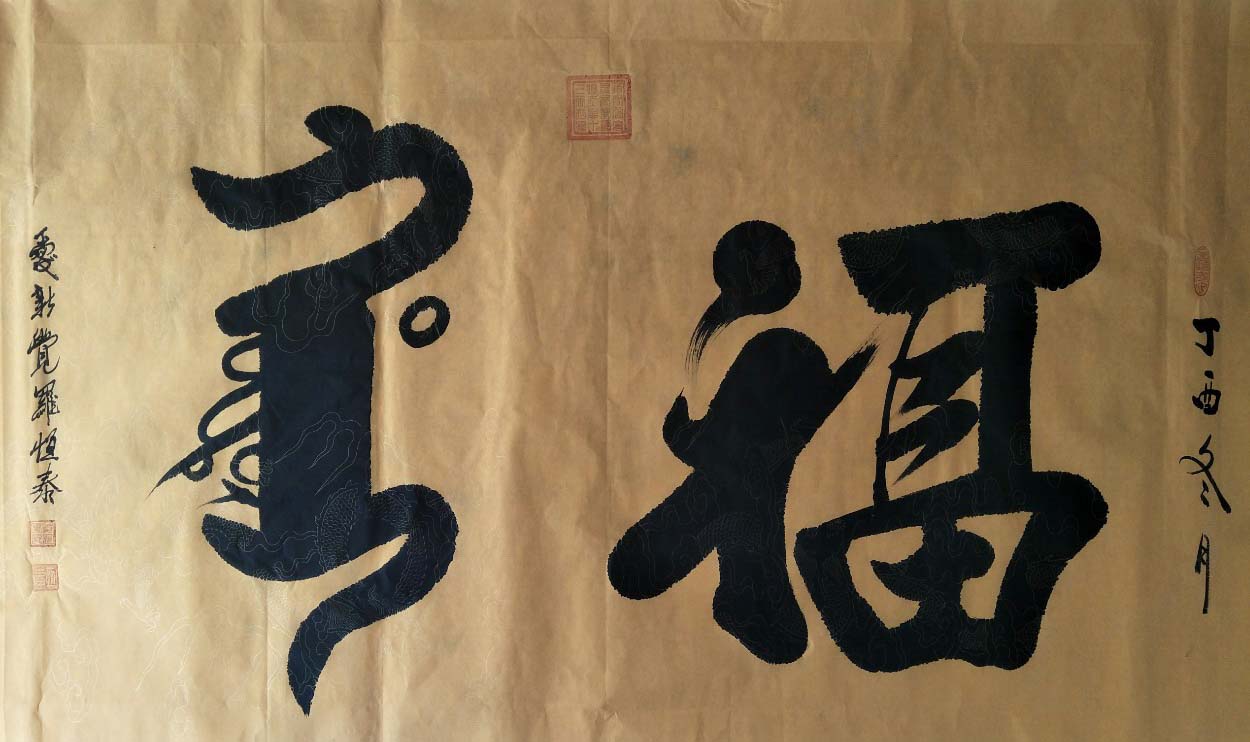 丁酉冬月
福
ᡥᡡᡨᡠᡵᡳ
愛新覺羅恒泰